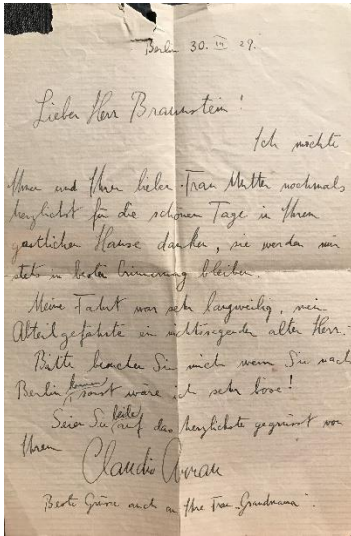 Berlin 30. IV 29.
Lieber Herr Braunstein!
Ich möchte
Ihnen und Ihrer lieben Frau Mutter nochmals
herzlichst für die schönen Tage in Ihrem
gastlichen Hause danken, sie werden mir
stets in bester Erinnerung bleiben.
Meine Fahrt war sehr langweilig, mein
Abteilgefährte ein nichtssagender alter Herr.-
Bitte besuchen Sie mich wenn Sie nach
Berlin kommen sonst wäre ich sehr böse!
Seien Sie beide auf das herzlichste gegrüsst von
Ihrem
Claudio Arrau
Beste Grüsse auch an Ihre Frau „Grandmama".